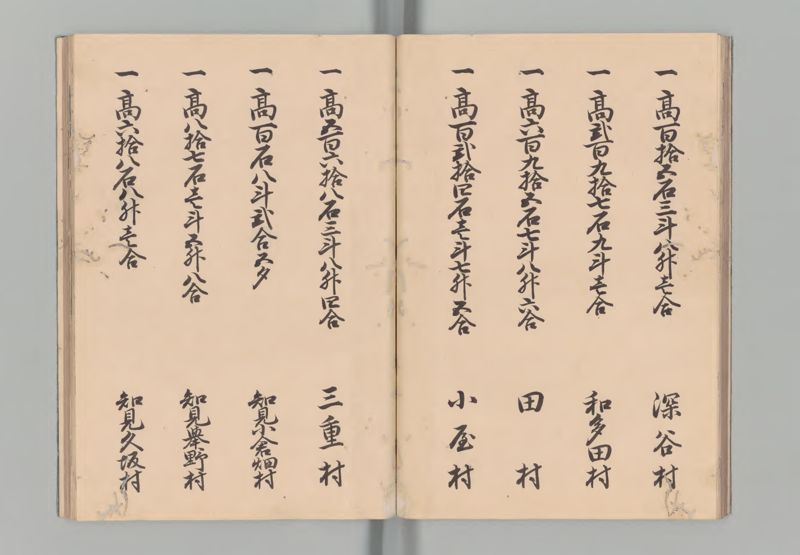 一 高百拾五石三斗八升壱合 深谷村
一 高弐百九拾七石九斗壱合 和多田村
一 高六百九拾五石七斗八升六合 田村
一 高百弐拾四石壱斗七升五合 小屋村
一 高五百六拾八石三斗八升四合 三重村
一 高百石八斗弐合五夕 知見小倉畑村
一 高八拾七石壱斗五升八合 知見挙野村
一 高六拾八石八升壱合 知見久坂村